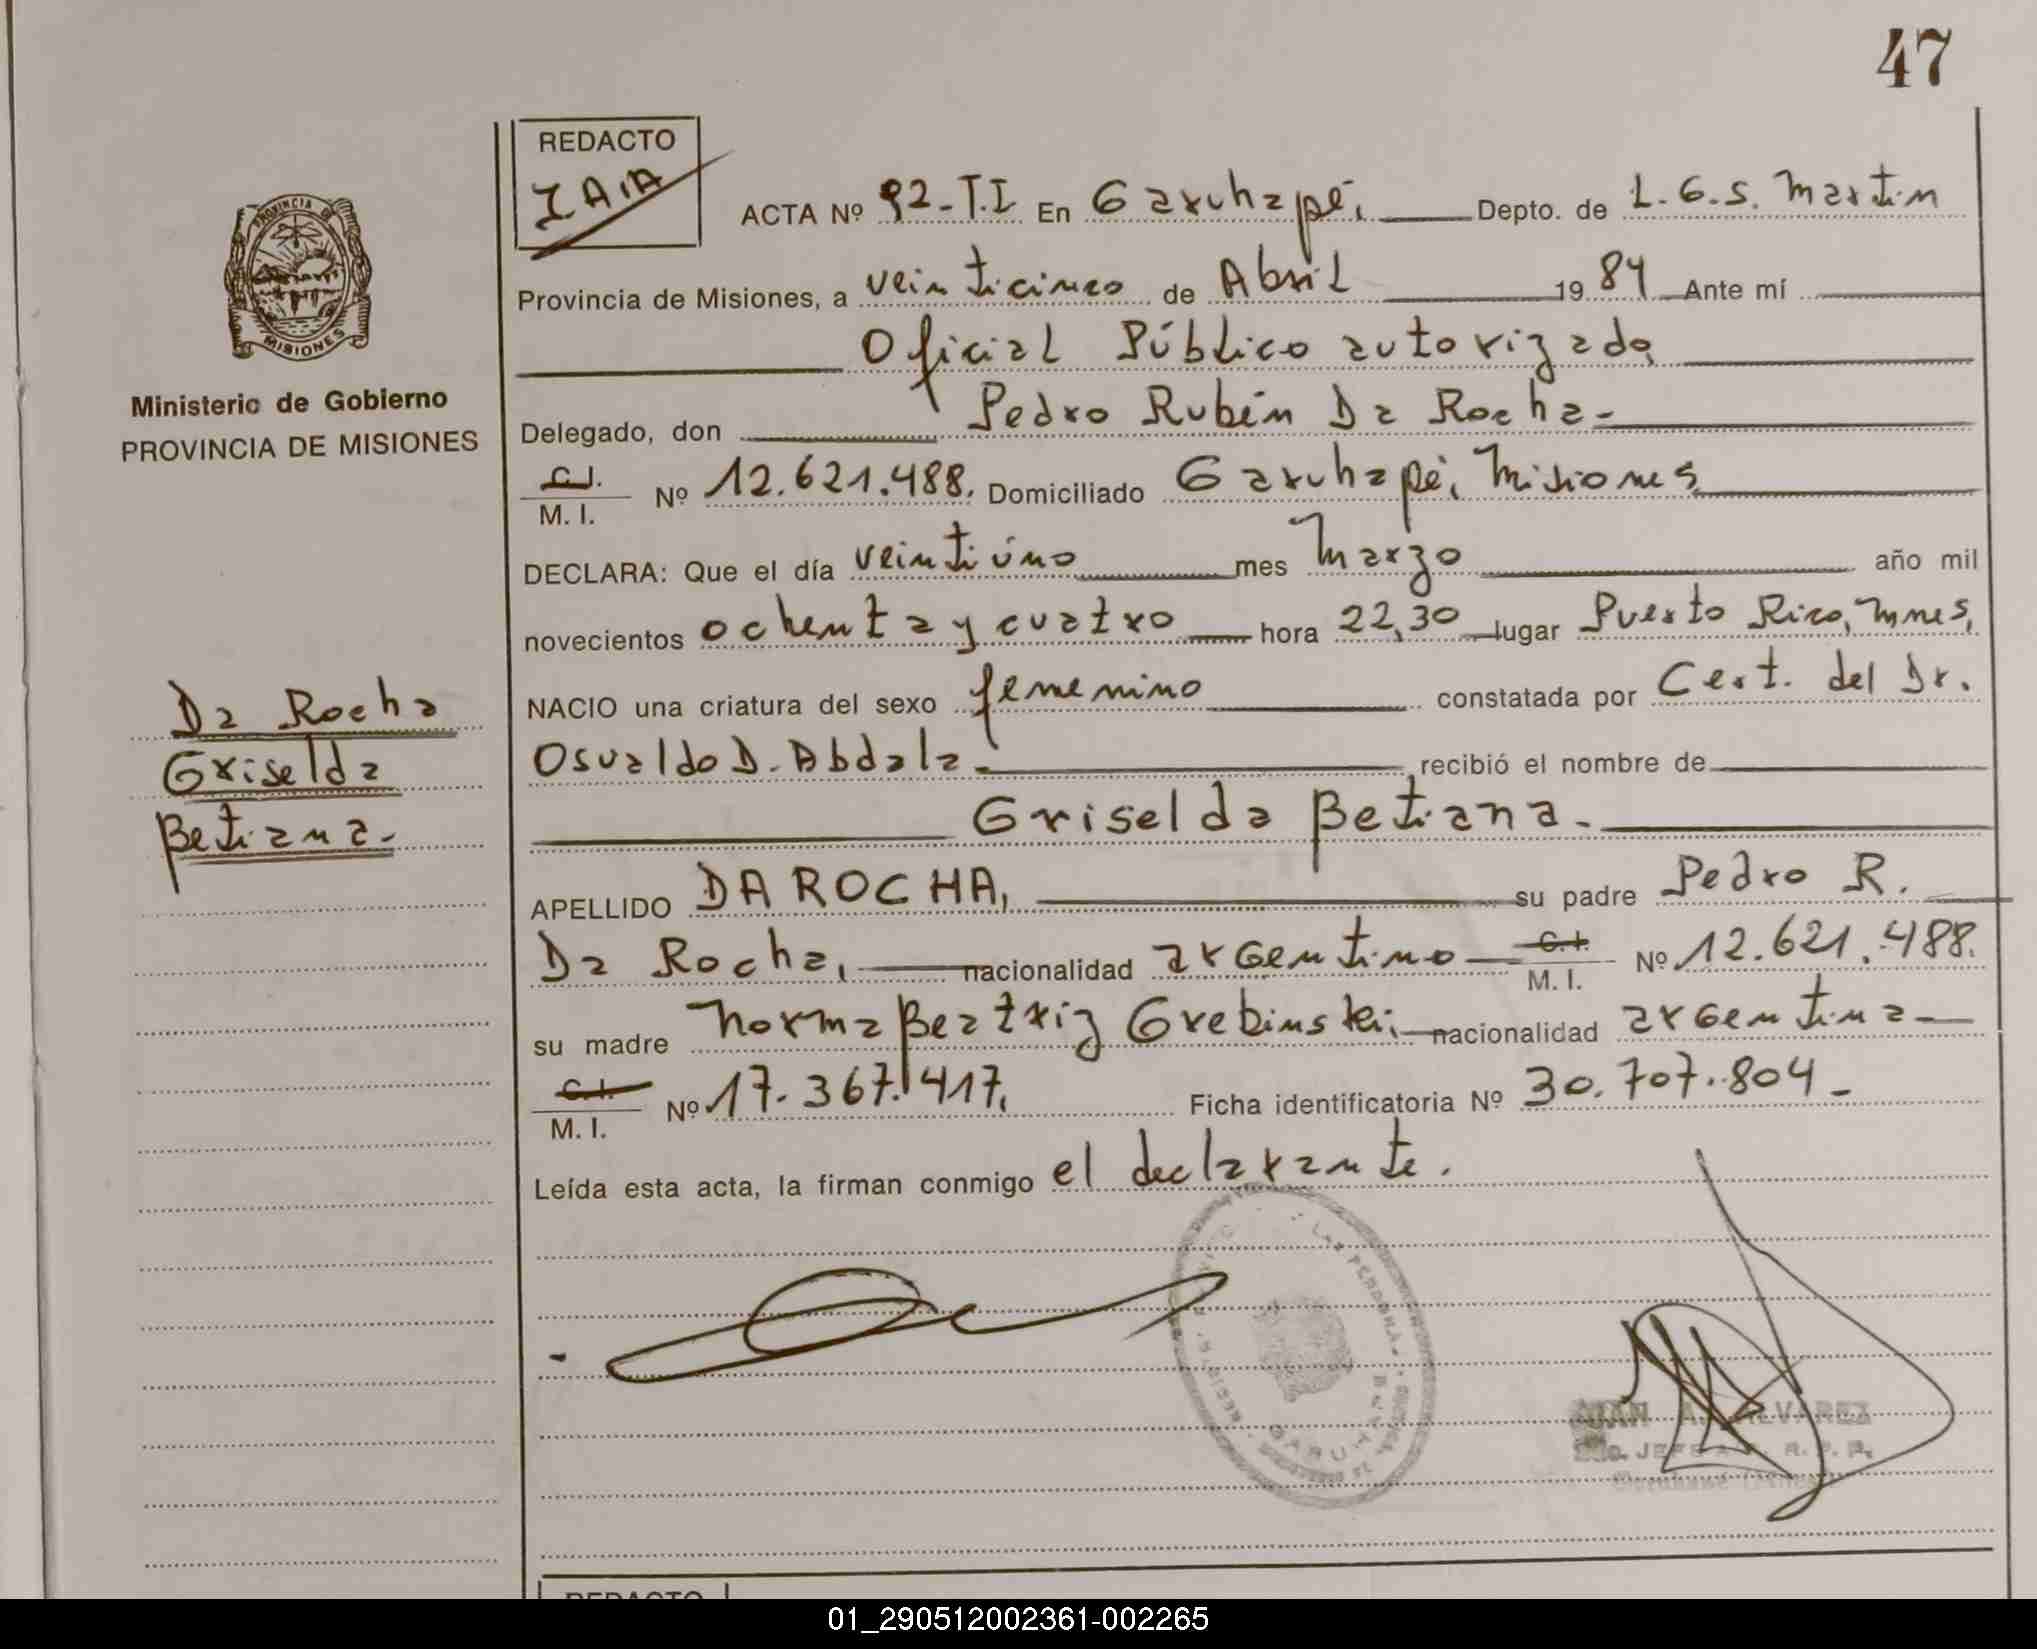 47
REDACTO
ACTA Nº 92-T.I En Garuhapé, Depto. de L.G.S. Martin
PROVINCIA DE MISIONES
Provincia de Misiones, a veinticinco de Abril 1984 Ante mí
Oficial Público autorizado
Ministerio de Gobierno
PROVINCIA DE MISIONES
Delegado, don Pedro Rubén Da Rocha-
C.I. M. I. Nº 12.621.488. Domiciliado Garuhapé, Misiones
DECLARA: Que el día veintiúno mes Marzo año mil
novecientos ochenta y cuatro hora 22,30 lugar Puerto Rico, Mnes,
Da Rocha
Griselda
Betiana-
NACIO una criatura del sexo femenino constatada por Cert. del Dr.
Osvaldo D. Abdala- recibió el nombre de
Griselda Betiana-
APELLIDO DA ROCHA, su padre Pedro R.
Da Rocha, nacionalidad argentino C.I. M. I. Nº 12.621.488.
su madre Norma Beatriz Grebinski, nacionalidad argentina-
C.I. M. I. Nº 17.367.417, Ficha identificatoria Nº 30.707.804-
Leída esta acta, la firman conmigo el declarante.
LAS PERSONAS
JUAN A. ALVAREZ
JEFE
REDACTO
01_290512002361-002265